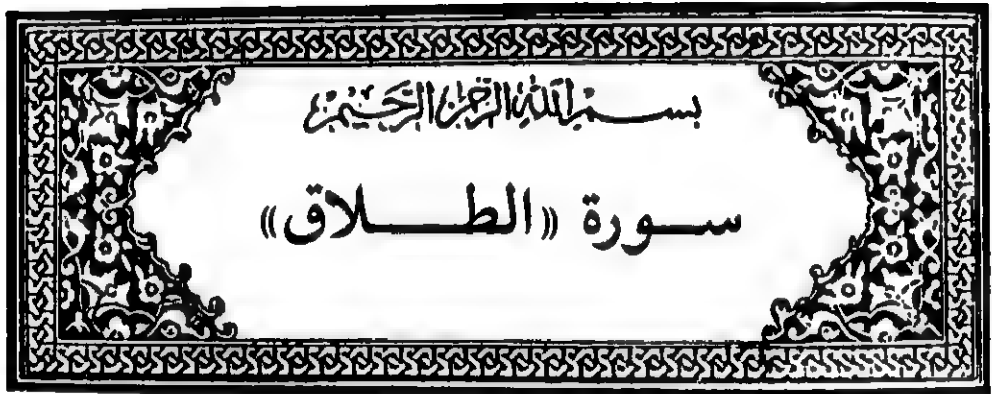 بسم الله الرحمن الرحيم
سورة «الطلاق»